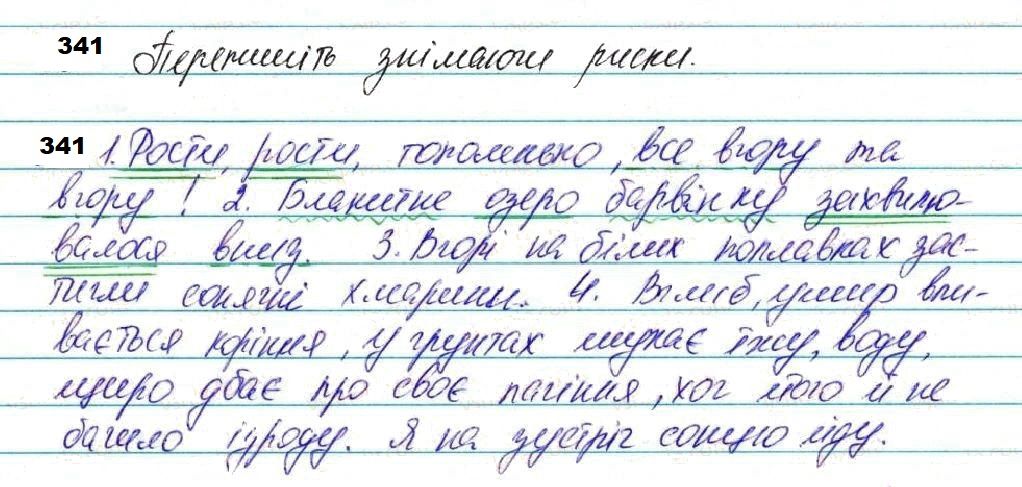 341 Перепишіть знімаючи риски.
341 1. Рости, рости, тополенько, все вгору та
вгору! 2. Блакитне озеро барвінку захвилю-
валося внизу. 3. Вгорі на білих поплавках зас-
тигли сонячні хмарини. 4. Вглиб, ушир впи-
вається коріння, у ґрунтах шукає їжу, воду,
щиро дбає про своє пагіння, хоч його й не
бачило ізроду. Я на зустріч сонцю йду.